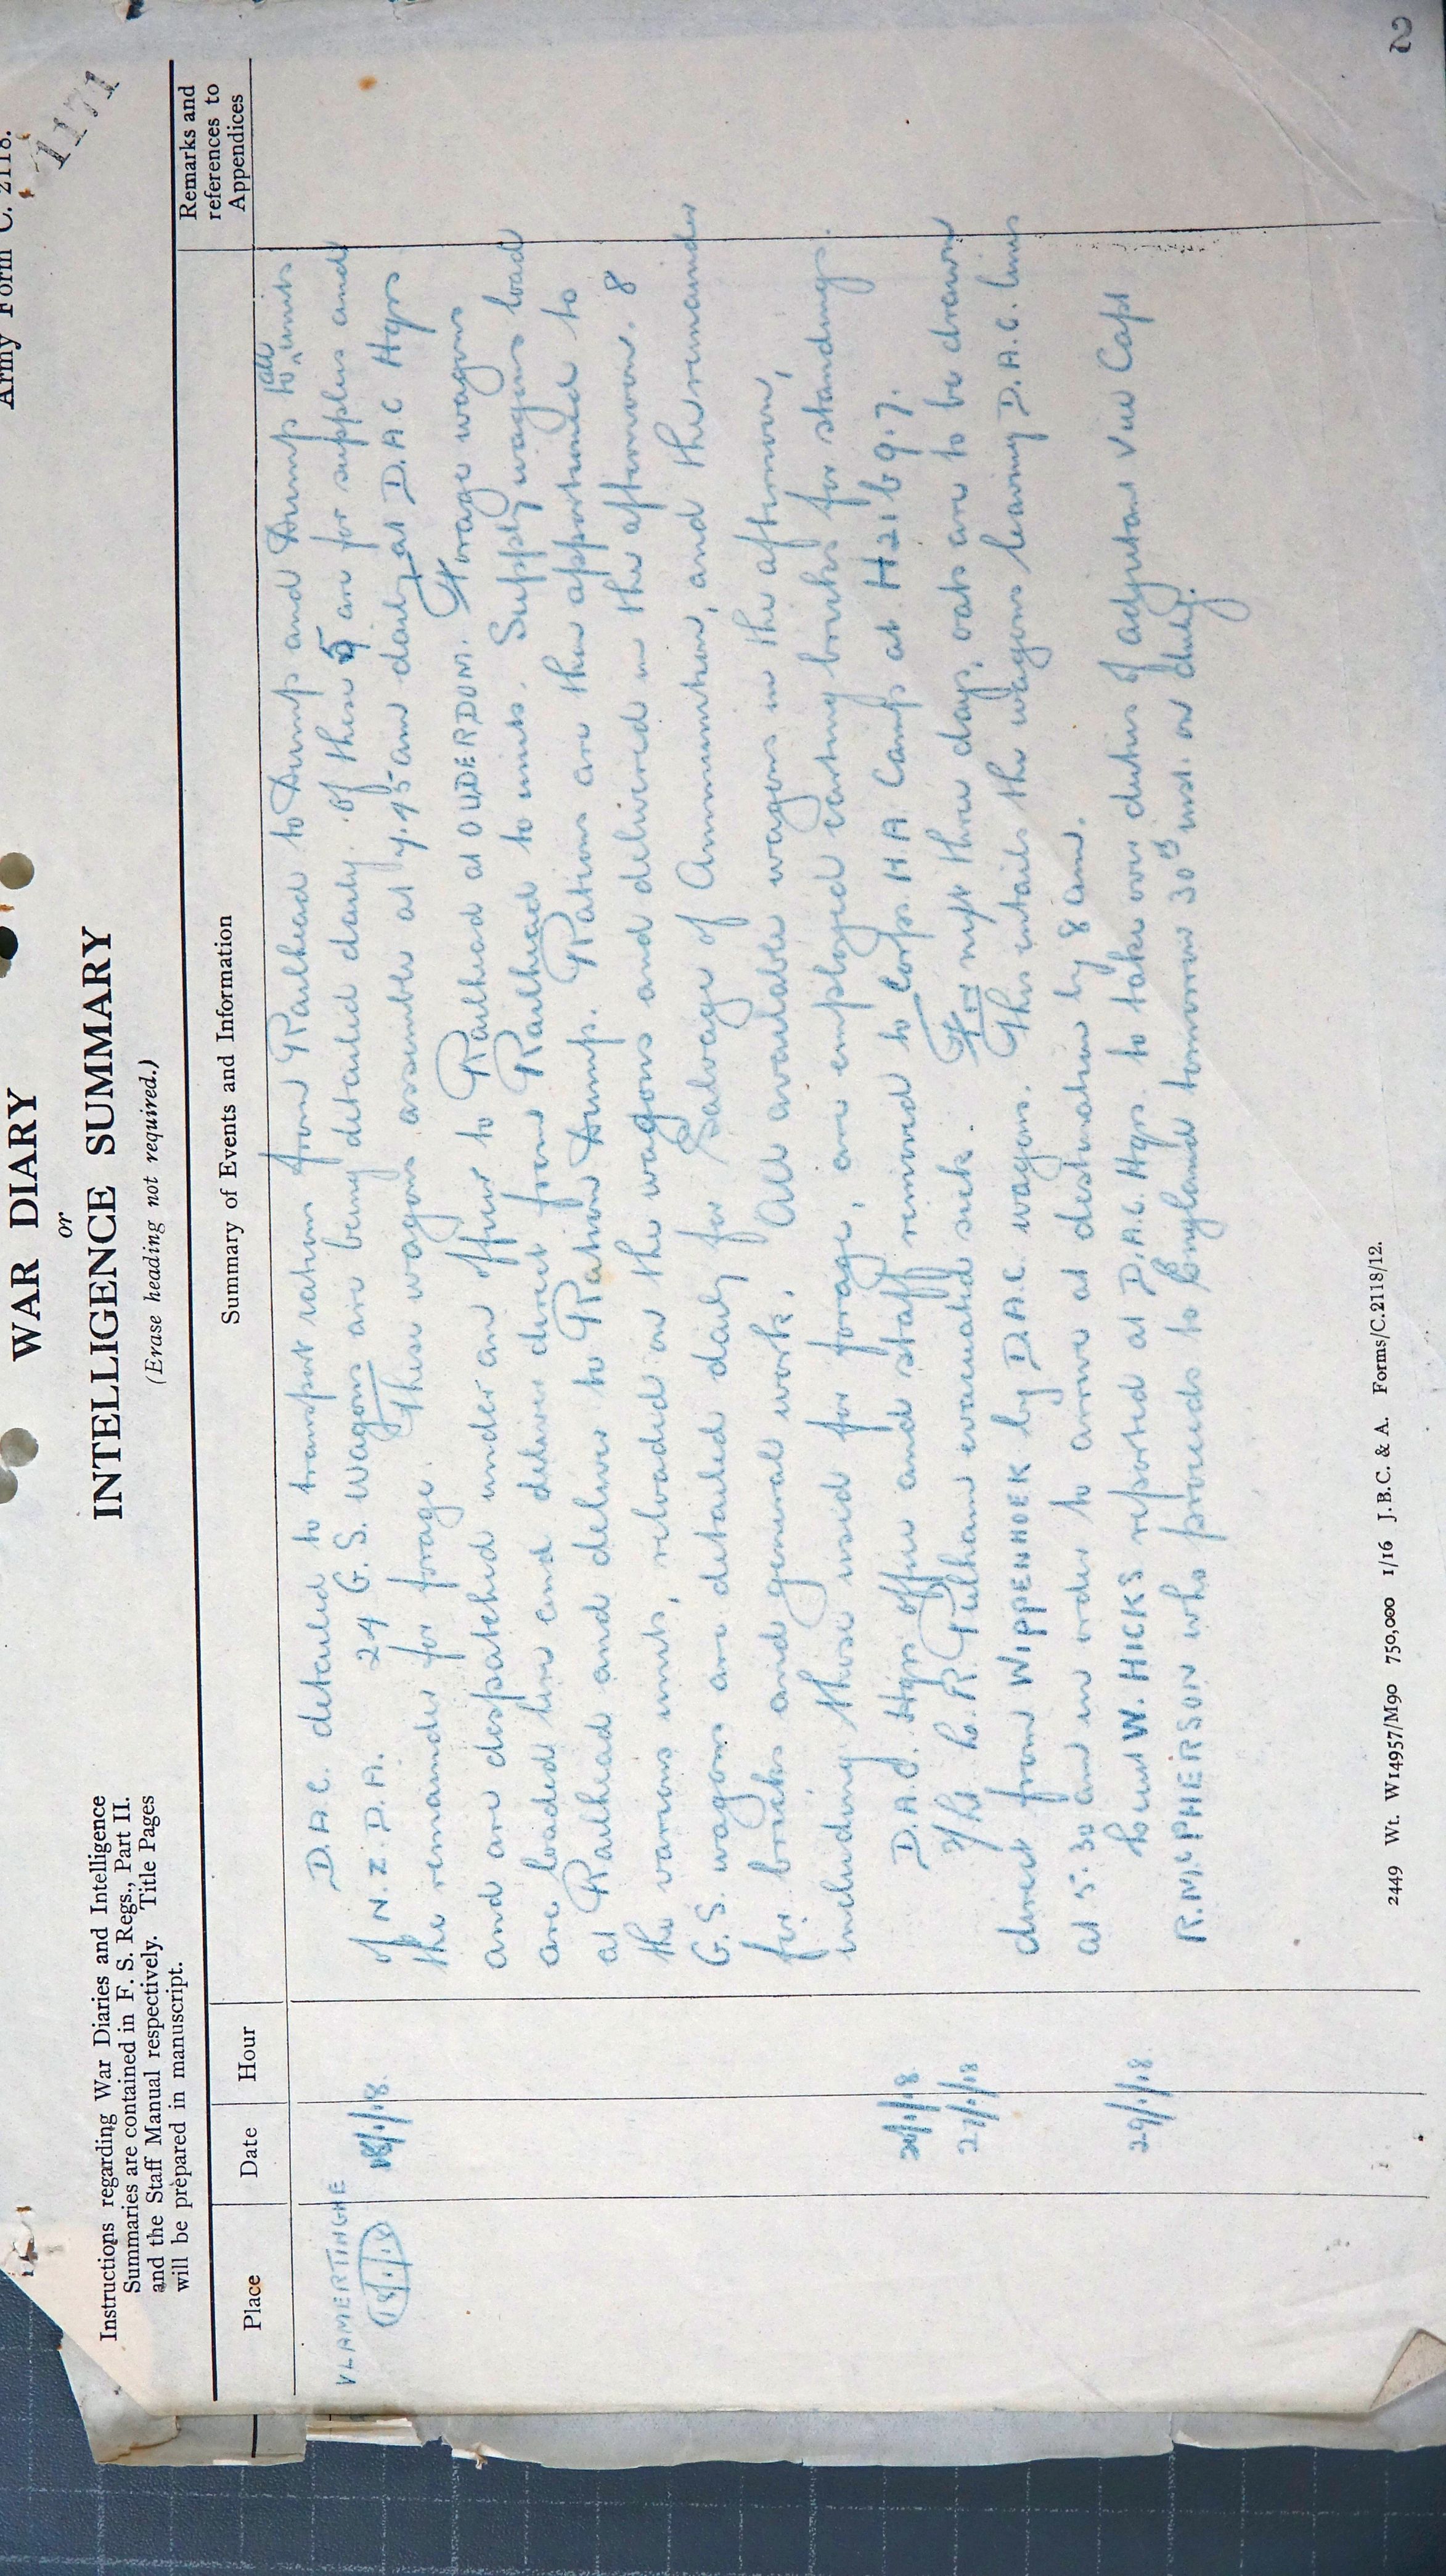 Army Form C. 2118.
1171
WAR DIARY
or
INTELLIGENCE SUMMARY
(Erase heading not required.)
Instructions regarding War Diaries and Intelligence
Summaries are contained in F. S. Regs., Part II.
and the Staff Manual respectively. Title Pages
will be prepared in manuscript.
Place
Date
Hour
Summary of Events and Information
Remarks and
references to
Appendices
VLAMERTINGHE
18/1/18
D.A.C. detailed to transport rations from Railhead to Dump and Dump to all units
of N.Z.D.A. 24 G.S. Wagons are being detailed daily. Of these 5 are for supplies and
the remainder for forage. These wagons assemble at 7.45 am daily at D.A.C Hqrs
and are despatched under an officer to Railhead at OUDERDOM. Forage wagons
are loaded here and deliver direct from Railhead to units. Supply wagons load
at Railhead and deliver to Ration Dump. Rations are then apportioned to
the various units, reloaded on the wagons and delivered in the afternoon. 8
G.S. wagons are detailed daily for Salvage of Ammunition, and the remainder
for bricks and general work. All available wagons in the afternoon,
including those used for forage, are employed carting bricks for standings.
D.A.C. Hqrs office and staff removed to Corps. H.A. Camp at H21b9.7.
27/1/18
R Pulham evacuated sick. For next three days, oats are to be drawn
direct from WIPPENHOEK by D.A.C. wagons. This entails the wagons leaving D.A.C. lines
at 5.30 am in order to arrive at destination by 8 am.
29/1/18
Lieut W. HICKS reported at D.A.C. Hqrs. to take over duties of adjutant vice Capt
R. McPHERSON who proceeds to England tomorrow 30th inst. on duty.
2449 Wt. W14957/M90 750,000 1/16 J.B.C. & A. Forms/C.2118/12.
2